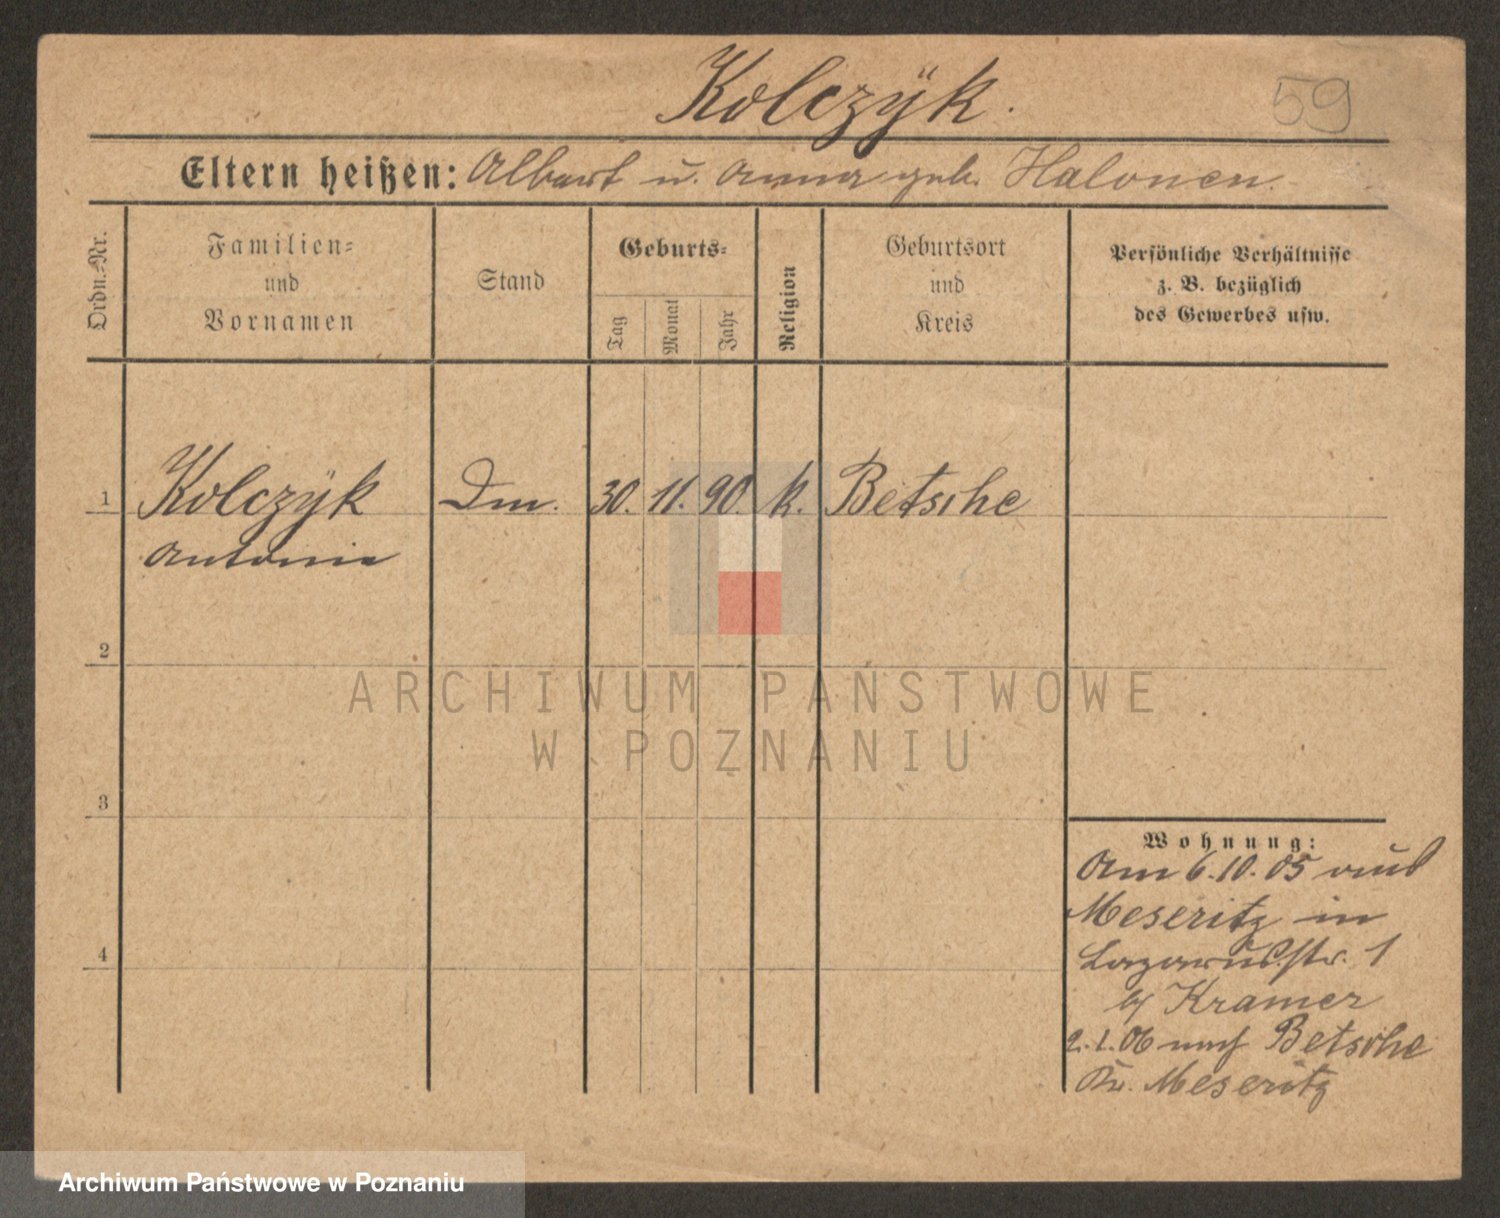 Kolczÿk.
59
Eltern heißen: Albert u. Anna geb. Halonen.
Ordn.-Nr.
Familien- und Vornamen
Stand
Geburts-
Tag
Monat
Jahr
Religion
Geburtsort und Kreis
Persönliche Verhältnisse
z. B. bezüglich
des Gewerbes usw.
1 Kolczÿk Dm. 30. 11. 90. k. Betsche
Antonie
2
ARCHIWUM PAŃSTWOWE
W POZNANIU
3
Wohnung:
Am 6.10.05 aus
Meseritz in
4
Lazarusstr. 1
b/ Kramer
2.1.06 nach Betsche
Kr. Meseritz
Archiwum Państwowe w Poznaniu